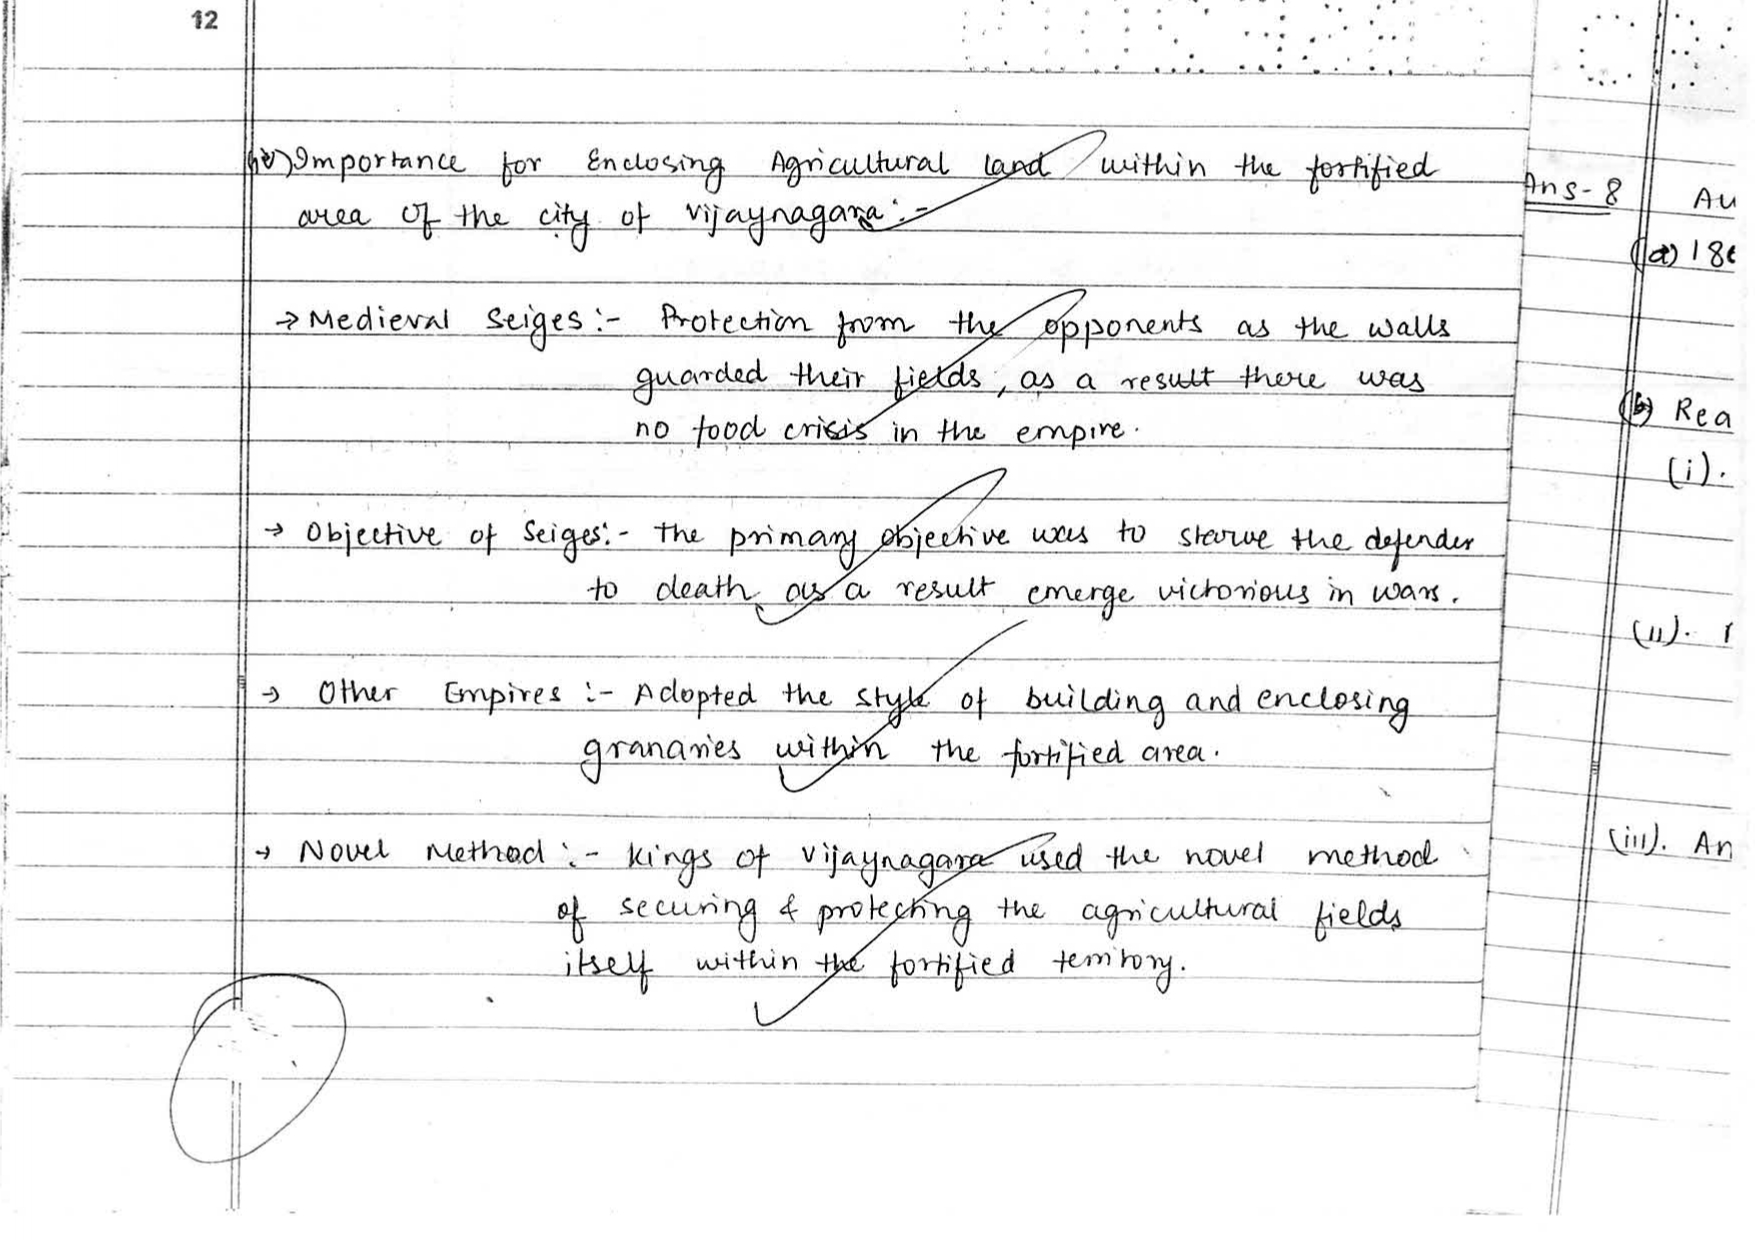 12
(iv) Importance for Enclosing Agricultural land within the fortified
area of the city of Vijaynagara :-
→ Medieval Seiges :- Protection from the opponents as the walls
guarded their fields, as a result there was
no food crisis in the empire.
→ Objective of Seiges :- The primary objective was to starve the defender
to death, as a result emerge victorious in wars.
→ Other Empires :- Adopted the style of building and enclosing
granaries within the fortified area.
→ Novel Method :- Kings of Vijaynagara used the novel method
of securing & protecting the agricultural fields
itself within the fortified territory.
Ans-8
Au
(a) 18
(b) Rea
(i).
(ii).
(iii). An